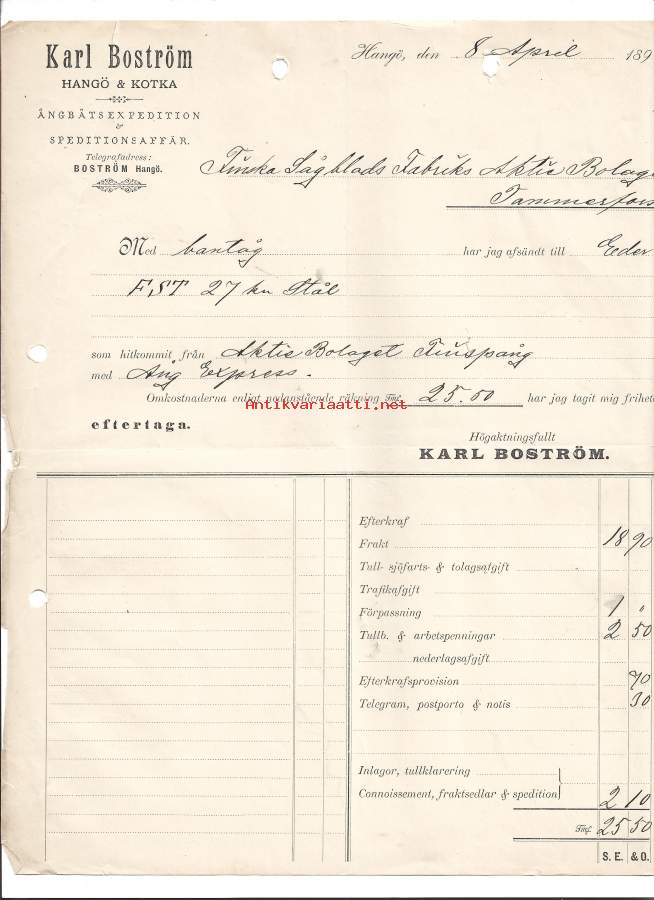 Karl Boström
HANGÖ & KOTKA
ÅNGBÅTSEXPEDITION
&
SPEDITIONSAFFÄR.
Telegrafadress:
BOSTRÖM Hangö.
Hangö, den 8 April 189
Finska Sågblads Fabriks Aktie Bolag
Tammerfors
Med bantåg har jag afsändt till Eder
FST 27 kn Stål
som hitkommit från Aktie Bolaget Finspång
med Ång Express.
Omkostnaderna enligt nedanstående räkning Fmf. 25.50 har jag tagit mig frihete
eftertaga.
Antikvariaatti.net
Högaktningsfullt
KARL BOSTRÖM.
Efterkraf
Frakt 18 90
Tull- sjöfarts- & tolagsafgift
Trafikafgift
Förpassning 1 "
Tullb. & arbetspenningar 2 50
nederlagsafgift
Efterkrafsprovision 70
Telegram, postporto & notis 30
Inlagor, tullklarering
Connoissement, fraktsedlar & spedition 2 10
Fmf. 25 50
S. E. & O.